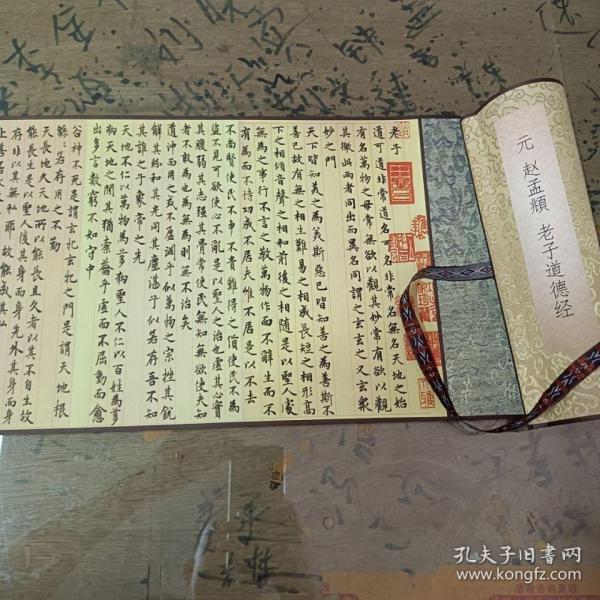 元 赵孟頫 老子道德经
老子
道可道非常道名可名非常名無名天地之始
有名萬物之母常無欲以觀其妙常有欲以觀
其徼此兩者同出而異名同謂之玄玄之又玄衆
妙之門
天下皆知美之為美斯惡已皆知善之為善斯不
善已故有無之相生難易之相成長短之相形高
下之相傾音聲之相和前後之相隨是以聖人處
無為之事行不言之教萬物作而不辭生而不
有為而不恃功成不居夫惟不居是以不去
不尚賢使民不爭不貴難得之貨使民不為
盜不見可欲使心不亂是以聖人之治也虛其心實
其腹弱其志强其骨常使民無知無欲使夫知
者不敢為也為無為則無不治矣
道沖而用之或不盈淵乎似萬物之宗挫其銳
解其紛和其光同其塵湛乎似若存吾不知
其誰之子象帝之先
天地不仁以萬物為芻狗聖人不仁以百姓為芻
狗天地之間其猶橐籥乎虛而不屈動而愈
出多言數窮不如守中
谷神不死是謂玄牝玄牝之門是謂天地根
綿綿若存用之不勤
天長地久天地所以能長且久者以其不自生故
能長生是以聖人後其身而身先外其身而身
存非以其無私耶故能成其私
上善
孔夫子旧书网
www.kongfz.com